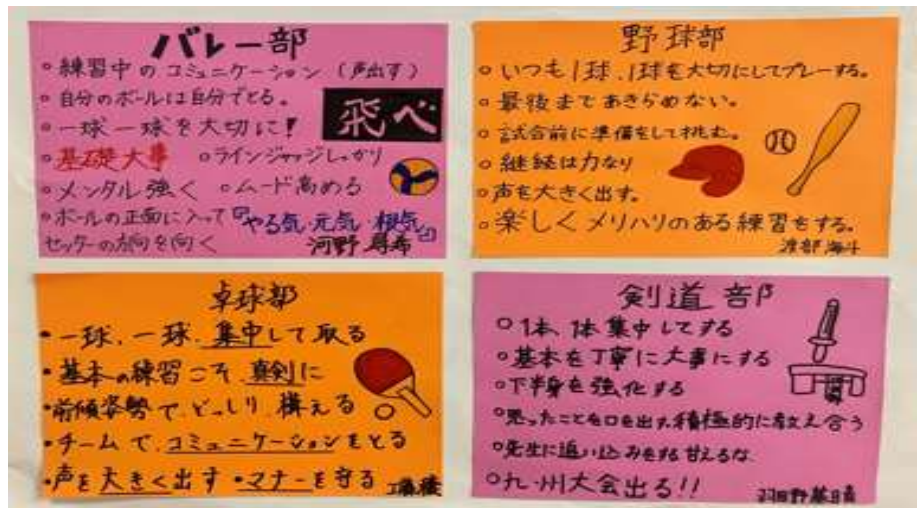 バレー部
○練習中のコミュニケーション(声出す)
○自分のボールは自分でとる。
○一球一球を大切に!
飛べ
○基礎大事 ○ラインジャッジしっかり
○メンタル強く ○ムード高める
○ボールの正面に入って
セッターの方向を向く
『やる気・元気・根気』
河野
野球部
○いつも1球、1球を大切にしてプレーする。
○最後まであきらめない。
○試合前に準備をして挑む。
○継続は力なり
○声を大きく出す。
○楽しくメリハリのある練習をする。
渡部 海斗
卓球部
・一球、一球、集中して取る
・基本の練習こそ真剣に
・前傾姿勢でどっしり構える
・チームでコミュニケーションをとる
・声を大きく出す ・マナーを守る
剣道部
○1本、1本集中してする
○基本を丁寧に大事にする
○下半身を強化する
○思ったことを口を出す。積極的に教え合う
○先生に追い込みをする甘えるな
○九州大会出る!!
羽田野